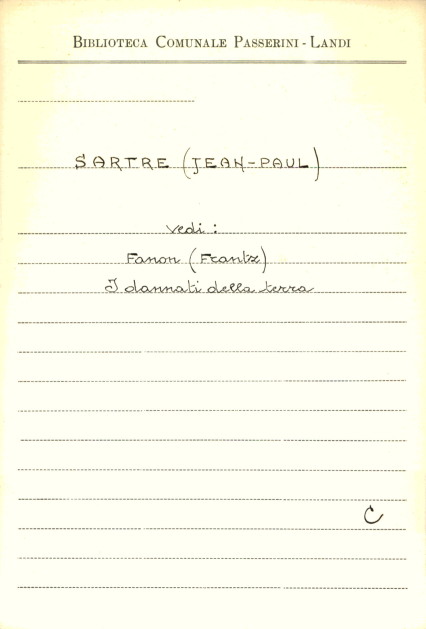 BIBLIOTECA COMUNALE PASSERINI - LANDI
SARTRE (JEAN-PAUL)
vedi :
Fanon (Frantz)
I dannati della terra
C